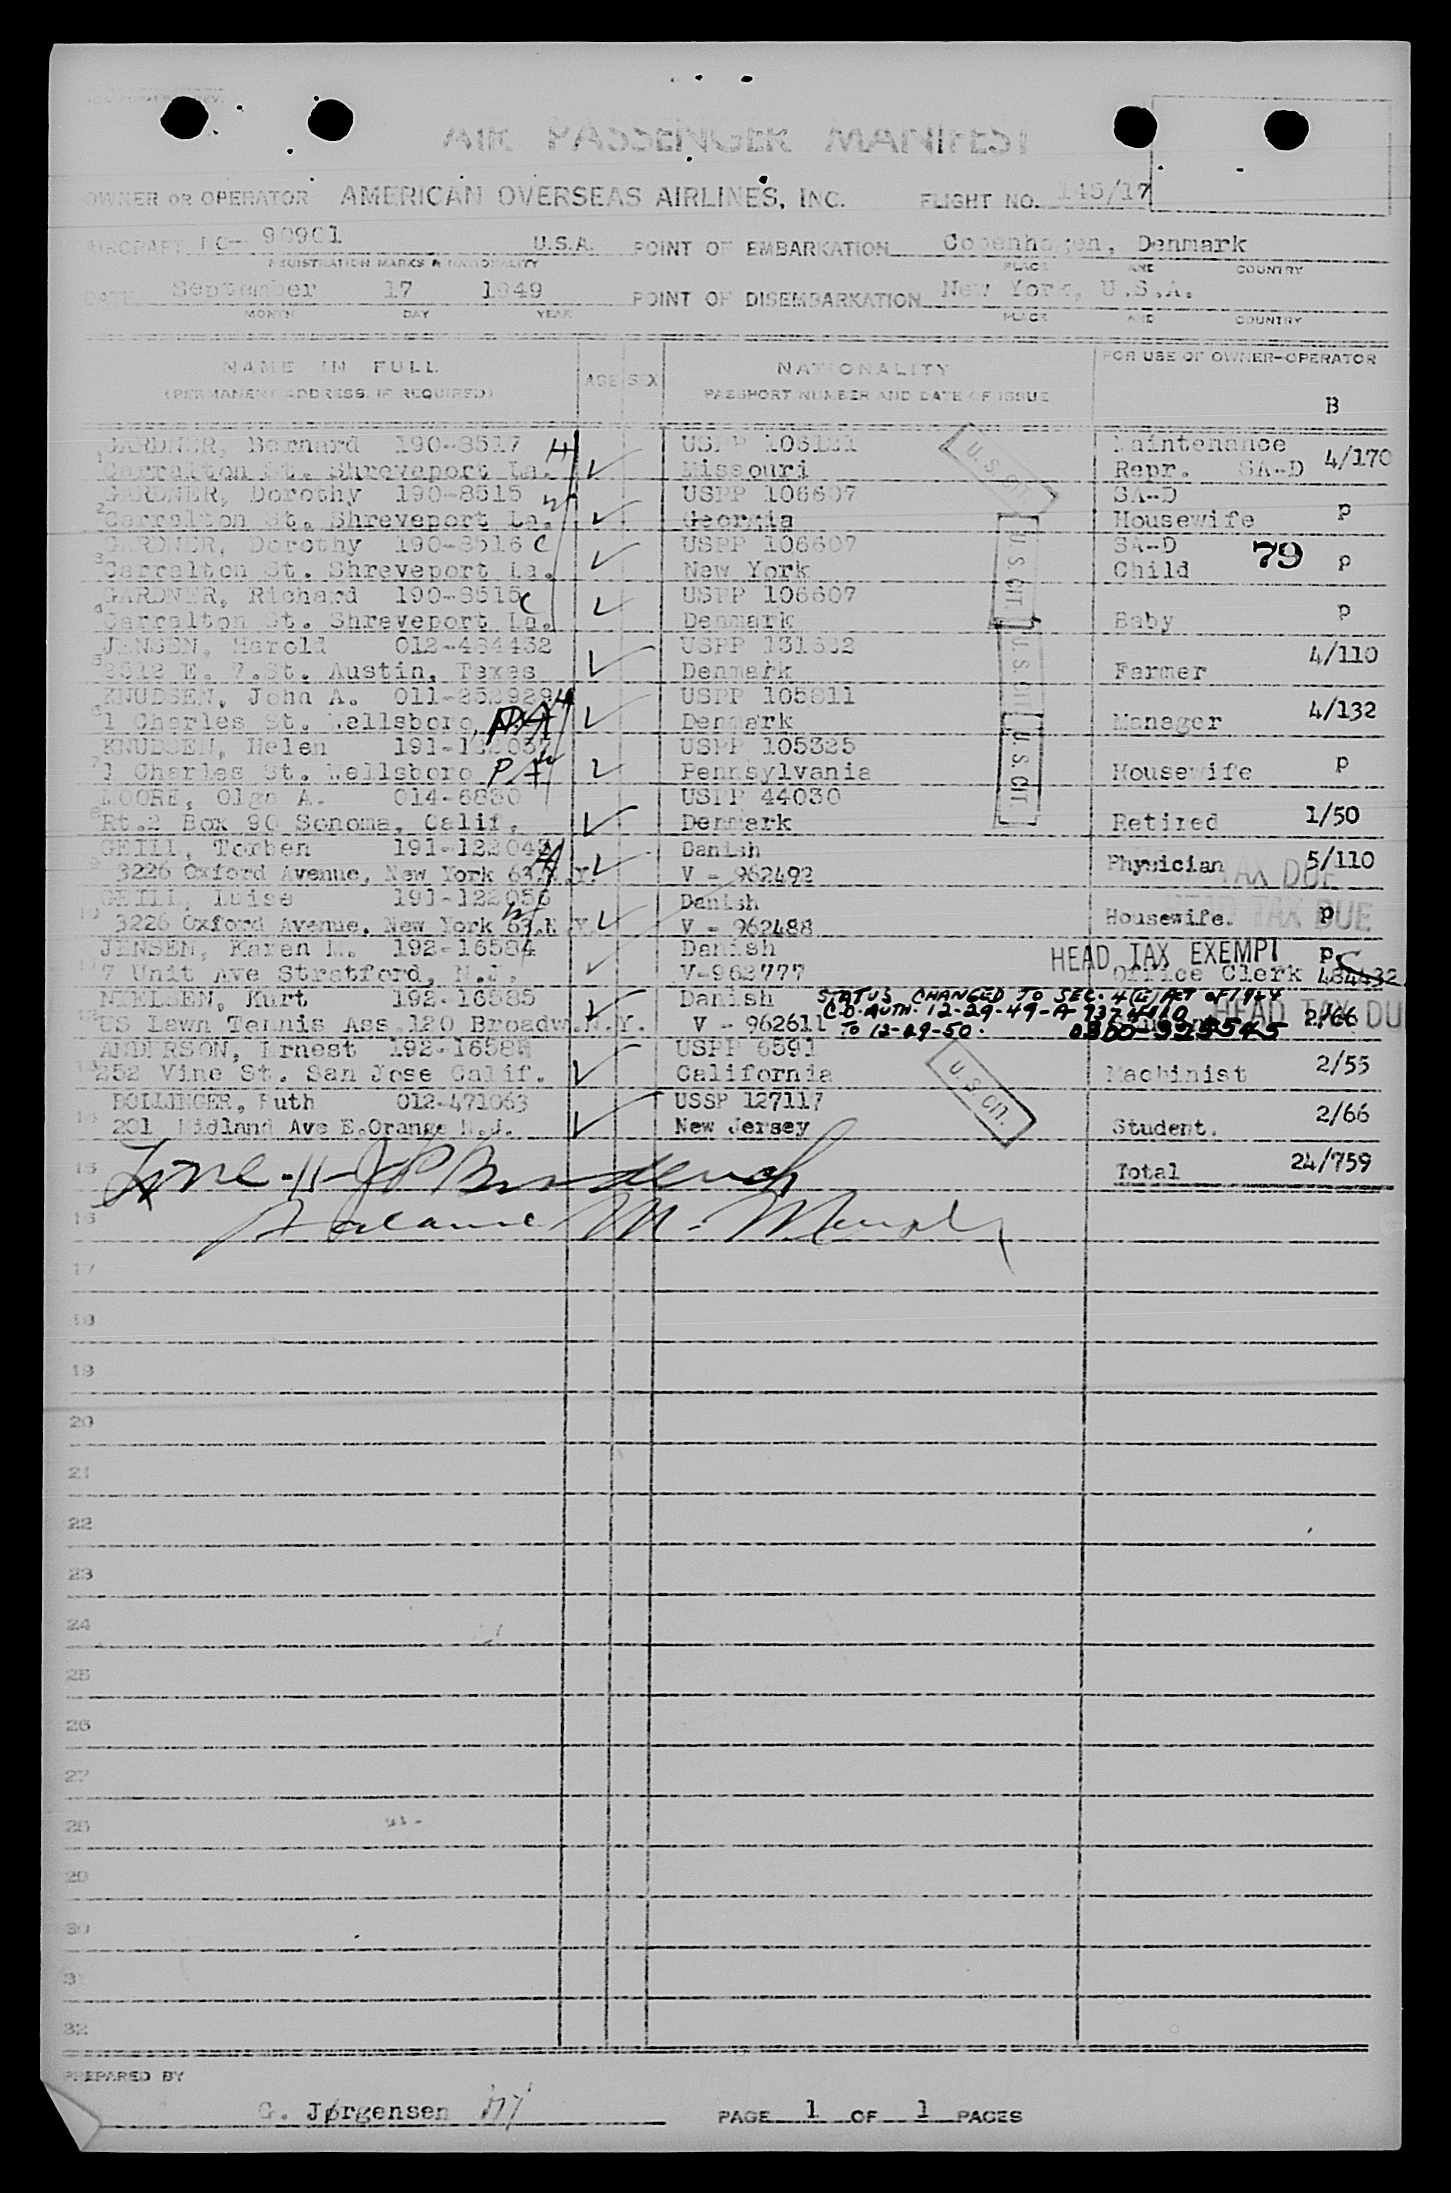 AIR PASSENGER MANIFEST
OWNER OR OPERATOR AMERICAN OVERSEAS AIRLINES, INC. FLIGHT NO. 145/17
AIRCRAFT NC- 90901 U.S.A. POINT OF EMBARKATION Copenhagen, Denmark
REGISTRATION MARKS & NATIONALITY PLACE AND COUNTRY
DATE September 17 1949 POINT OF DISEMBARKATION New York, U.S.A.
MONTH DAY YEAR PLACE AND COUNTRY
NAME IN FULL AGE SEX NATIONALITY FOR USE OF OWNER-OPERATOR
(PERMANENT ADDRESS, IF REQUIRED) PASSPORT NUMBER AND DATE OF ISSUE
B
GARDNER, Bernard 190-8517 H USPP Maintenance
1 Carralton St. Shreveport La. Missouri Repr. SA-D 4/170
U. S. CIT.
GARDNER, Dorothy 190-8515 W USPP 106607 SA-D
2 Carralton St. Shreveport La. Georgia Housewife p
GARDNER, Dorothy 190-8516 C USPP 106607 SA-D
3 Carralton St. Shreveport La. New York Child 79 p
U. S. CIT.
GARDNER, Richard 190-8515 C USPP 106607
4 Carralton St. Shreveport La. Denmark Baby p
JENSEN, Harold 012-464432 USPP
5 E. 7.St. Austin, Texas Denmark Farmer 4/110
U. S. CIT
KNUDSEN, John A. 011-252929 H USPP 105811
6 1 Charles St. Wellsboro, PA Denmark Manager 4/132
KNUDSEN, Helen USPP 105325
7 1 Charles St. Wellsboro PA W Pennsylvania Housewife p
U. S. CIT
MOORE, Olga A. 014-6830 USPP 44030
8 Rt.2 Box 90 Sonoma, Calif. Denmark Retired 1/50
GEILL, Torben H Danish
9 3226 Oxford Avenue, New York 63.N.Y. V - 962492 Physician 5/110
TAX DUE
GEILL, Luise 191-122056 W Danish
10 3226 Oxford Avenue, New York 63.N.Y. V - 962488 Housewife. p
HEAD TAX DUE
JENSEN, Karen M. 192-16584 Danish HEAD TAX EXEMPT p
11 7 Unit Ave Stratford, N.J. V-962777 Office Clerk 484432
NIELSEN, Kurt 192-16585 Danish STATUS CHANGED TO SEC. 4(E) ACT OF 1924
12 US Lawn Tennis Ass.120 Broadw.N.Y. V - 962611 C.O. AUTH. 12-29-49-A 2/66
HEAD TAX DUE
TO 12-29-50.
ANDERSON, Ernest USPP 6591
13 252 Vine St. San Jose Calif. California Machinist 2/55
U. S. CIT.
BOLLINGER, Ruth 012-471063 USSP 127117
14 201 Midland Ave E.Orange N.J. New Jersey Student. 2/66
15 Line-11- Total 24/759
16
17
18
19
20
21
22
23
24
25
26
27
28
29
30
31
32
PREPARED BY
G. Jørgensen PAGE 1 OF 1 PAGES